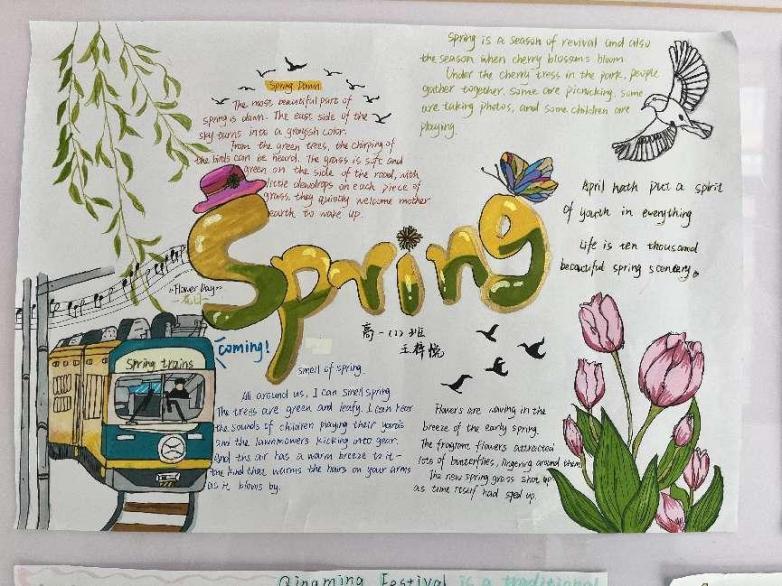 Spring Dawn
The most beautiful part of
spring is dawn. The east side of the
sky turns into a grayish color.
From the green trees, the chirping of
the birds can be heard. The grass is soft and
green on the side of the road, with
little dewdrops on each piece of
grass, they quietly welcome mother
earth to wake up.
Spring is a season of revival and also
the season when cherry blossoms bloom.
Under the cherry tress in the park, people
gather together. Some are picnicking, some
are taking photos, and some children are
playing.
April hath put a spirit
of youth in everything
Life is ten thousand
beautiful spring scenery.
Spring
"Flower Day"
高一(1)班
coming!
Spring trains
smell of spring
All around us, I can smell spring
The trees are green and leafy. I can hear
the sounds of children playing their yards
and the lawnmowers kicking into gear.
And the air has a warm breeze to it-
the kind that warms the hairs on your arms
as it blows by.
Flowers are waving in the
breeze of the early spring.
The fragrant flowers attracted
lots of butterflies, lingering around them
The new spring grass shot up
as time itself had sped up.
Qingming Festival is a traditional